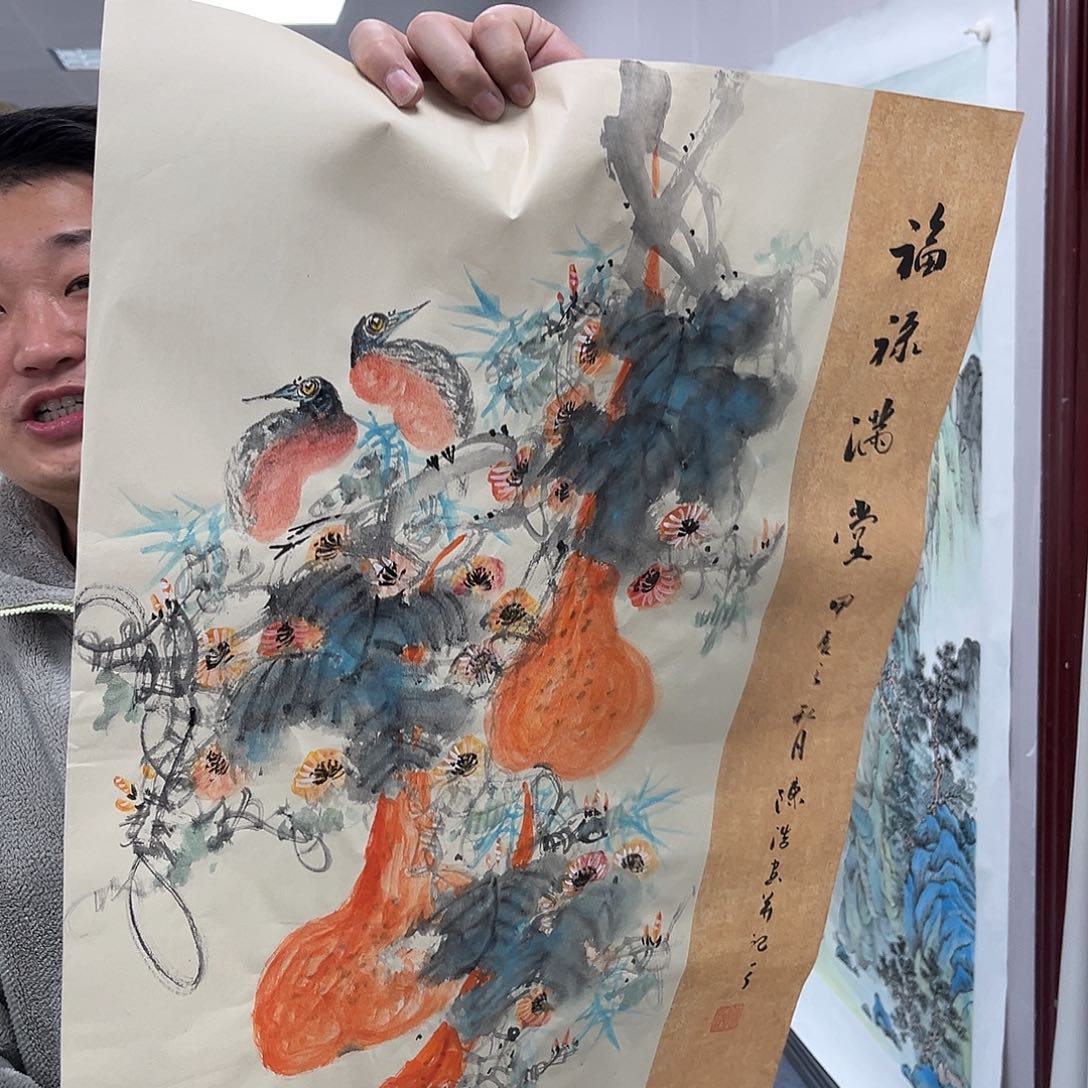 福禄满堂
甲辰之秋月陳浩畫並记之